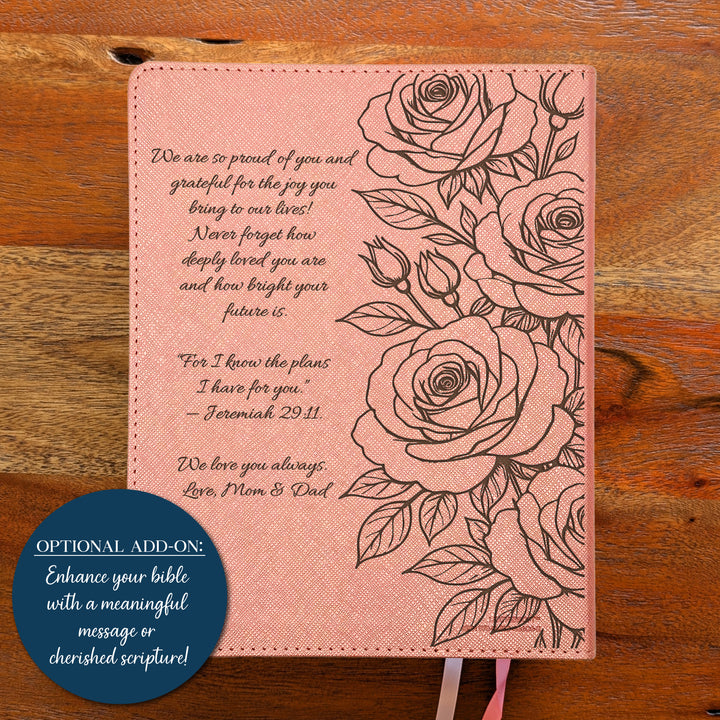 We are so proud of you and
grateful for the joy you
bring to our lives!
Never forget how
deeply loved you are
and how bright your
future is.
"For I know the plans
I have for you."
— Jeremiah 29:11.
We love you always.
Love, Mom & Dad
OPTIONAL ADD-ON:
Enhance your bible
with a meaningful
message or
cherished scripture!